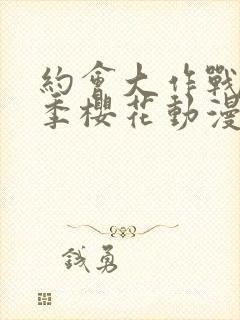 約會大作戰
季櫻花動漫
錢勇